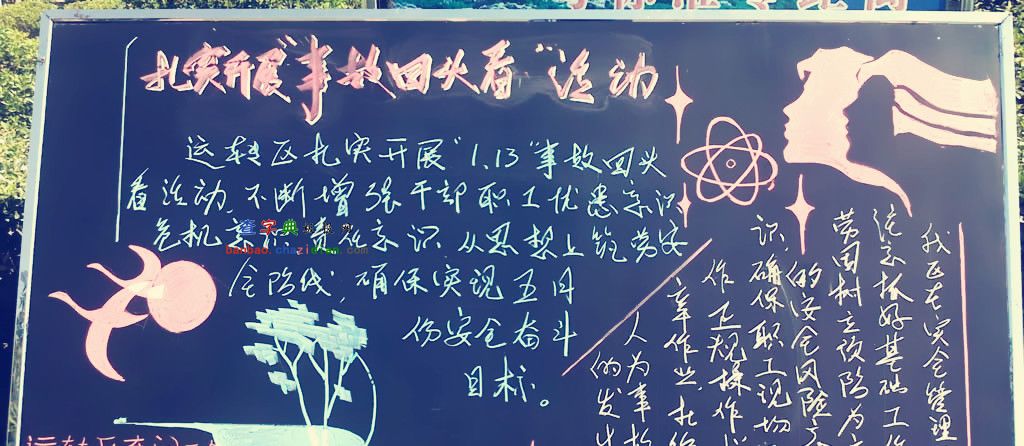 扎实开展"事故回头看"活动
运转区扎实开展"1.13"事故回头
看活动,不断增强干部职工忧患意识
危机意识 责任意识,从思想上筑劳安
全防线;确保实现五月
份安全奋斗
目标。
查字典
banbao.chazidian.com
我区在安全管理
注意抓好基础工作
劳固树立预防为
的安全风险
识,确保职工现场
作业规操作
章作业,杜
人为事故
的发生